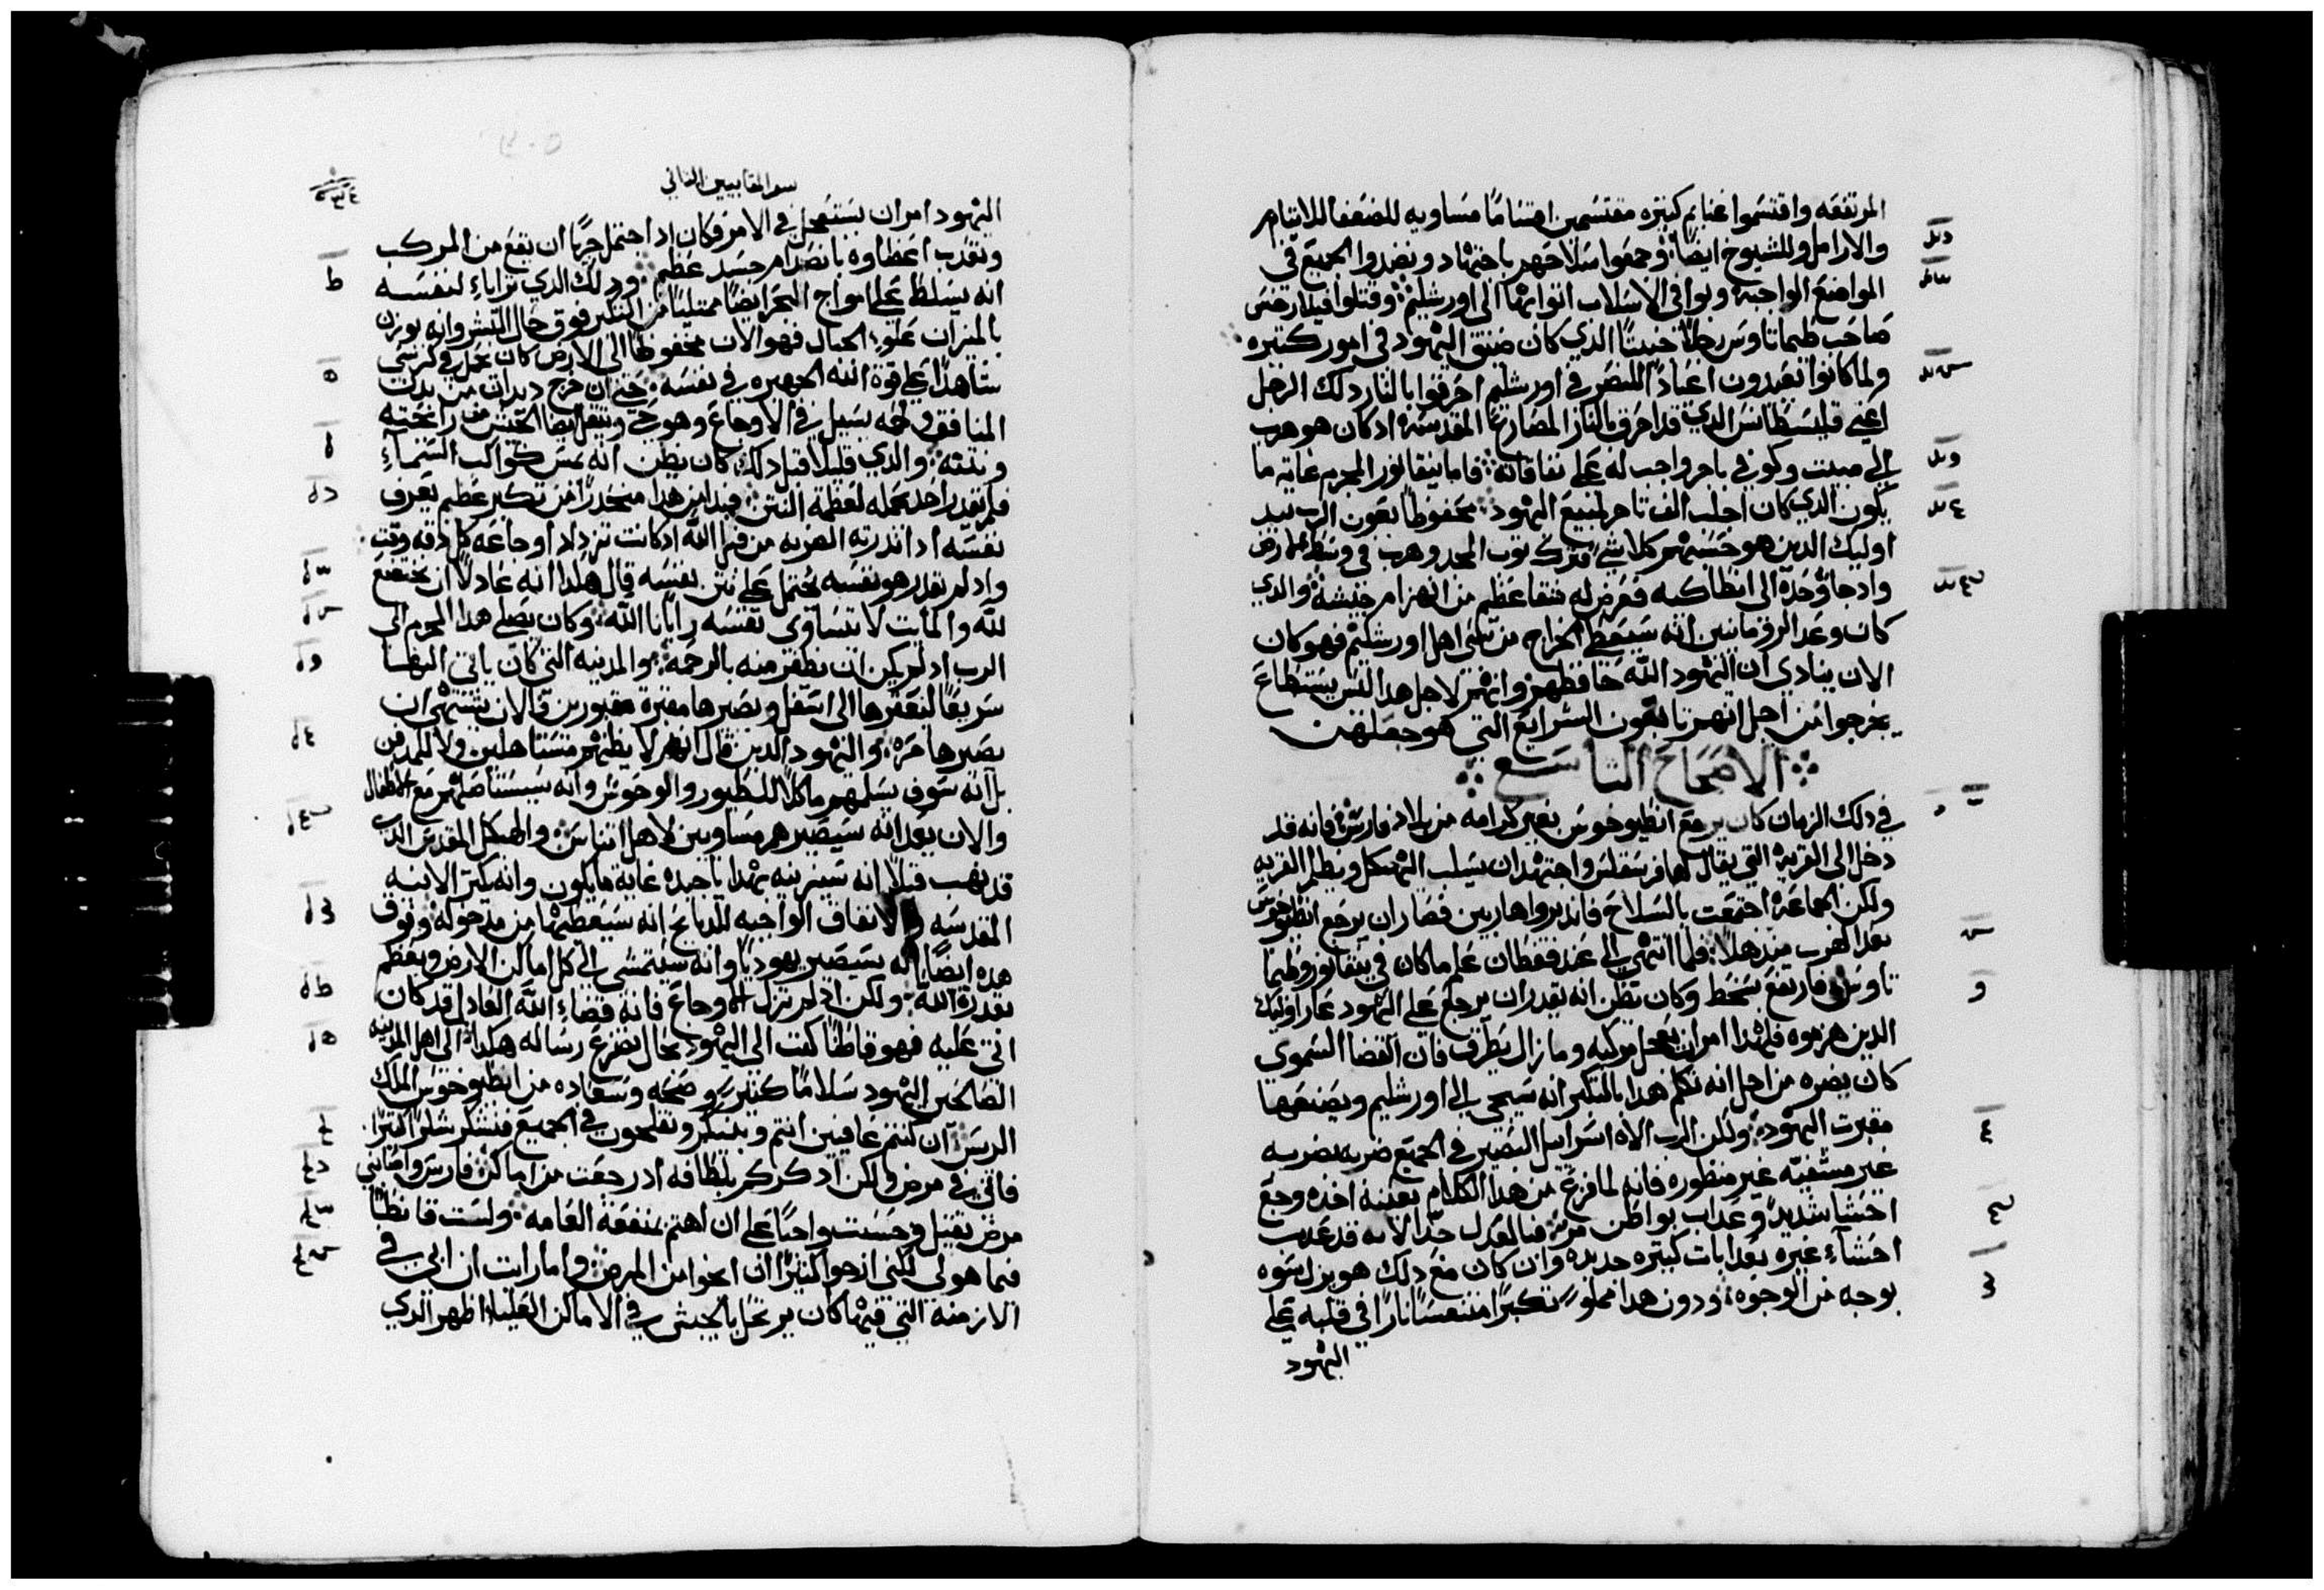 المرتفعه واقتسموا غنايم كثيره مقتسمين اقتسامًا مساويه للضعفا للايتام
والارامل وللشيوخ ايضًا وجمعوا سلاحهم باجتهاد ونضدوا الجميع في
المواضع الواجبه وبواقي الاسلاب اتوا بها الى اورشليم وقتلوا فيلارخس
صاحب طيماتاوس رجلًا خبيثًا الذي كان ضيق اليهود في امور كثيره
ولما كانوا يعيدون اعيادًا للنصر في اورشليم احرقوا بالنار دلك الرجل
اعني قليسطانس الذي قد احرق بالنار المصاريع المقدسه اد كان هو هرب
الى مبيت وكوفي باجر واجب له على نفاقاته فاما نيقانور المجرم غاية ما
يكون الدي كان اجلب الف تاجر لمبيع اليهود محفوظًا بعون الرب بيد
اوليك الدين هو حسبهم كلا شي فترك توب المجد وهرب في وسط الارض
وادجا وحده الى انطاكيه فعرض له شقا عظيم من انهزام جيشه والدي
كان وعد الرومانيين انه سيعطي الخراج من سبي اهل اورشليم فهو كان
الان ينادي ان اليهود الله حافظهم وانهم لاجل هدا ليس يستطاع
يجرحوا من اجل انهم تابعون الشرايع التي هو جعلهن
الاصحاح التاسع
في دلك الزمان كان يرجع انطيوخوس بغير كرامه من بلاد فارس فانه قد
دخل الى القريه التي يقال لها فرسفلس واجتهد ان يسلب الهيكل ويظلم القريه
ولكن الجماعه اجتمعت بالسلاح فاندبروا هاربين فصار ان يرجع انطيوخوس
بعد الهرب مبهدلًا فلما انتهى الى عند قفطان علم ما كان في نيقانور وطيما
تاوس فارتفع بسخط وكان يظن انه يقدر ان يرجع على اليهود عار اوليك
الدين هزموه فلهدا امر ان يعجل مركبه وما زال يطرف فان القضا السموي
كان يضره من اجل انه تكلم هدا بالتكبر انه سيجي الى اورشليم ويصنعها
مقبرت اليهود ولكن الرب الاه اسراييل البصير في الجميع ضربه بضربه
غير مشفيه غير منظوره فانه لما فرغ من هدا الكلام بعينه اخده وجع
احشا شديد وعداب بواطن مر فبالعدل جدًا لانه قد عدب
احشاء غيره بعدابات كثيره جديده وان كان مع دلك هو يزل سوه
بوجه من الوجوه ودون هدا مملوء تكبرًا متنفسًا نارًا في قلبه على
اليهود
سفر المقابيين الثاني
اليهود امر ان يستعجل في الامر فكان اد احتمل جريًا ان يقع من المركب
وتعدب اعضاوه بانصدام جسد عظيم ودلك الدي تراياء لنفسه
انه يسلط على امواج البحر ايضًا ممتليًا من التكبر فوق حال البشر وانه يوزن
بالميزان علوء الجبال فهو الان محفوظًا الى الارض كان يحمل في كرسي
شاهدًا على قوة الله الجهيره في نفسه حتى ان خرج ديدان من بدن
المنافق ولحمه يسيل في الاوجاع وهو حي ويتقل ايضًا الجيش من رايحته
ونتنه والدي قليلًا قبل دلك كان يظن انه يمس كواكب السماء
فلم يقدر احد يحمله لعظمة النتن فبدا من هدا منحدرًا من تكبر عظيم يعرف
نفسه اد اندرته الضربه من قبل الله اد كانت تزداد اوجاعه كل دقه وقت
واد لم يقدر هو نفسه يحتمل على نتن نفسه قال هكدا انه عادلًا ان يخضع
لله والمايت لا يتساوى نفسه رايًا بالله وكان يصلي هدا المجرم الى
الرب اد لم يكن ان يظفر منه بالرحمه والمدينه التي كان ياتي اليها
سريعًا ليعقرها الى اسفل ويصيرها مقبرة مقبورين فالان يشتهي ان
يصيرها حره واليهود الدين قال انهم لا يظنهم مستاهلين ولا للمدفن
بل انه سوف يسلمهم ماكلًا للطيور والوحوش وانه سيستاصلهم مع الاطفال
والان يعد انه سيصيرهم مساويين لاهل اتناس والهيكل المقدس الدي
قد نهب قبلًا انه سيزينه بهدايا جيده غاية ما يكون وانه يكتر الانيه
المقدسه والانفاق الواجبه للدبايح انه سيعطيها من مدخوله وفوق
هده ايضًا انه سيصير يهوديًا وانه سيتمشى الى كل اماكن الارض ويعظم
بقدرة الله ولكن اد لم تزل الاوجاع فانه قضاء الله العادل قد كان
اتى عليه فهو قاطنًا كتب الى اليهود بحال تضرع رساله هكدا الى اهل المدينه
الصالحين اليهود سلامًا كتيرًا وصحه وسعاده من انطيوخوس الملك
الريس ان كنتم عافيين انتم وبنيكم وتفلحون في الجميع فنشكر شكرًا كتيرًا
فاني في مرض ولكن ادكركم بلطافه اد رجعت من اماكن فارس واصابني
مرض تقيل وحسبت واجبًا على ان اهتم بمنفعة العامه ولست قانطًا
فيما هو لي لكني ارجوا كتيرًا ان انجوا من المرض واما رايت ان ابي في
الازمنه التي فيها كان يرتحل بالجيش في الاماكن العليا اظهر الدي